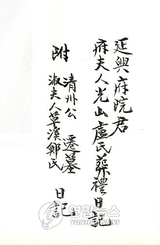 延興府院君
府夫人光山盧氏葬禮日記
附 清州公 遷墓
淑夫人草溪鄭氏 日記